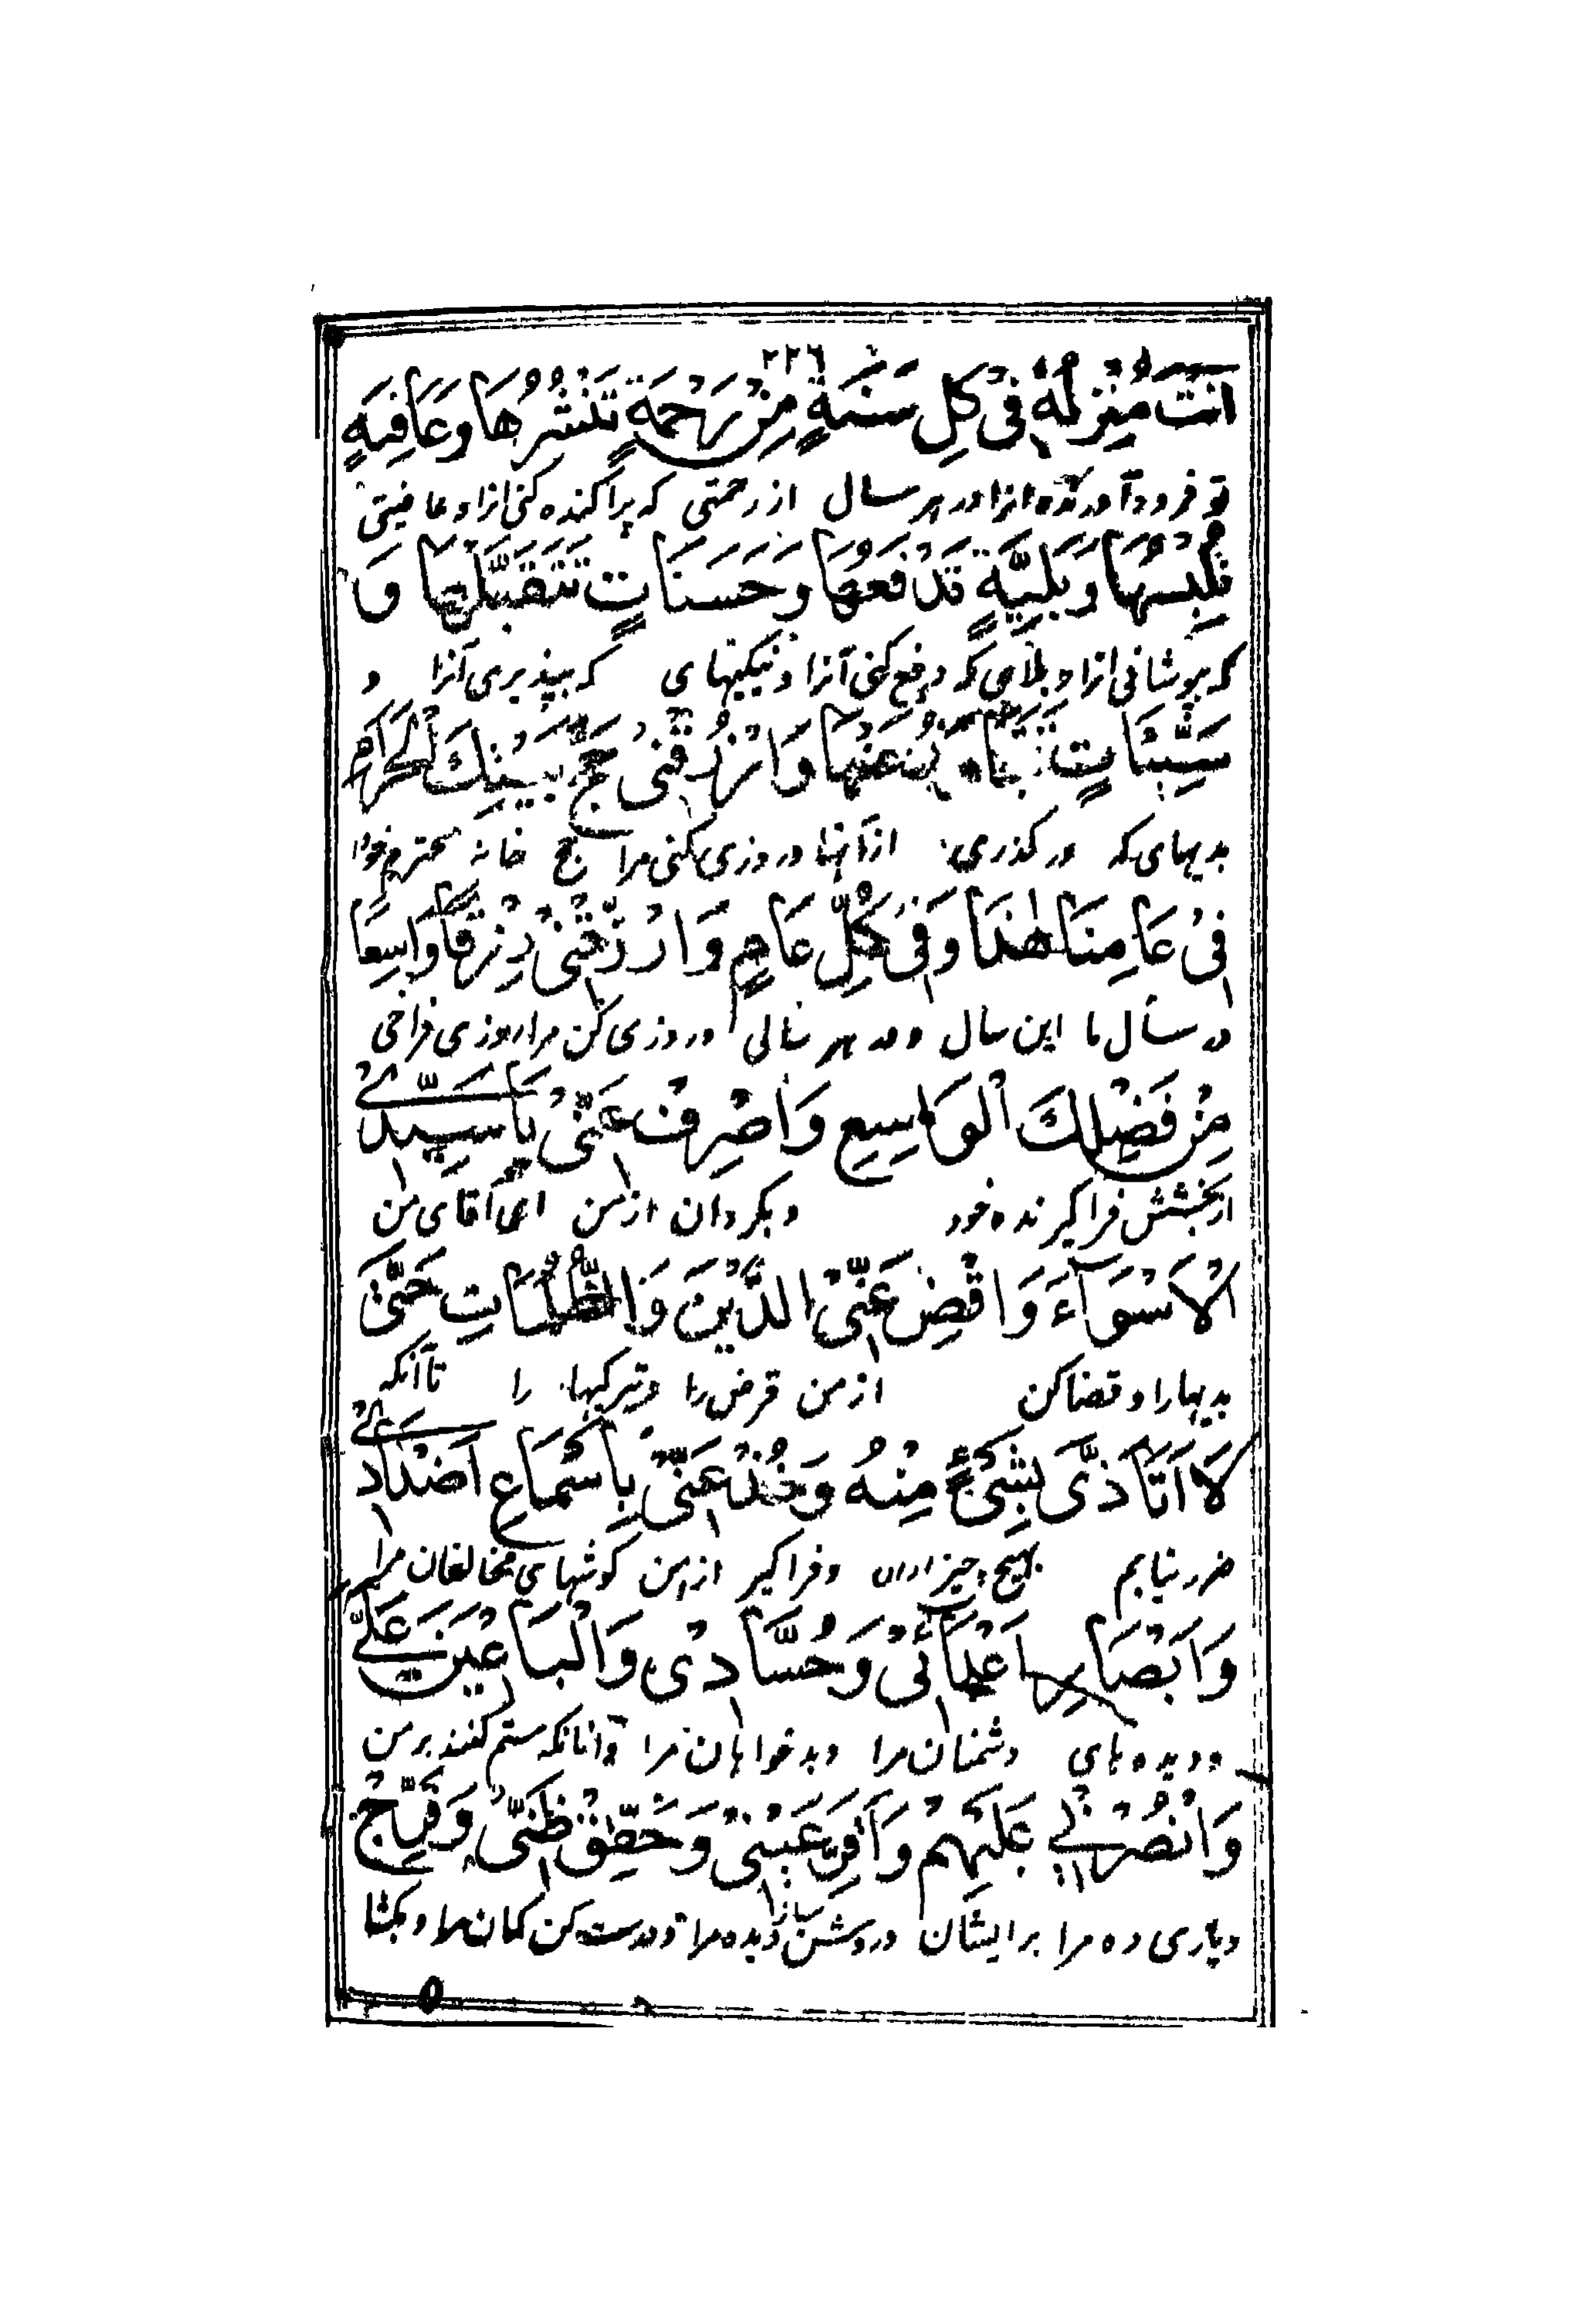 ٢٢٦
اَنْتَ مُنْزِلُهُ فِیْ كُلِّ سَنَةٍ مِنْ رَحْمَةٍ تَنْشُرُهَا وَعَافِيَةٍ
تو فرود آورنده انرا در هر سال از رحمتی که پراکنده کنی انرا و عافیتی
تُلْبِسُهَا وَبَلِيَّةٍ تَدْفَعُهَا وَحَسَنَاتٍ تَتَقَبَّلُهَا وَ
که بپوشانی انرا و بلای که دفع کنی آنرا و نیکیهای که بپذیری آنرا و
سَيِّئَاتٍ عَنْهَا وَارْزُقْنِیْ حَجَّ بَيْتِكَ الْحَرَامِ
بدیهای که در گذری از آنها و روزی کنی مرا حج خانه محترم خود
فِیْ عَامِنَا هٰذَا وَفِیْ كُلِّ عَامٍ وَارْزُقْنِیْ رِزْقًا وَاسِعًا
در سال ما این سال و در هر سالی و روزی کن مرا روزی فراخی
مِنْ فَضْلِكَ الْوَاسِعِ وَاصْرِفْ عَنِّیْ يَا سَيِّدِیْ
از بخشش فراگیرنده خود و بگردان از من ای آقای من
الْاَسْوَآءَ وَاقْضِ عَنِّیْ الدَّيْنَ وَالظُّلُمَاتِ حَتّٰى
بدیها را و قضا کن از من قرض را و تیرگیها را تا آنکه
لَا اَتَاَذّٰى بِشَیْءٍ مِنْهُ وَخُذْ عَنِّیْ بِاَسْمَاعِ اَضْدَادِیْ
ضرر نیابم بهیچ چیز ازان و فراگیر از من گوشهای مخالفان مرا
وَاَبْصَارِ اَعْدَائِیْ وَحُسَّادِیْ وَالْبَاغِيْنَ عَلَیَّ
و دیده های دشمنان مرا و بدخواهان مرا و آنانکه ستم کنند بر من
وَانْصُرْنِیْ عَلَيْهِمْ وَاَقِرَّ عَيْنِیْ وَحَقِّقْ ظَنِّیْ وَفَرِّجْ
و یاری ده مرا بر ایشان و روشن ساز دیده مرا و درست کن گمان مرا و بگشا